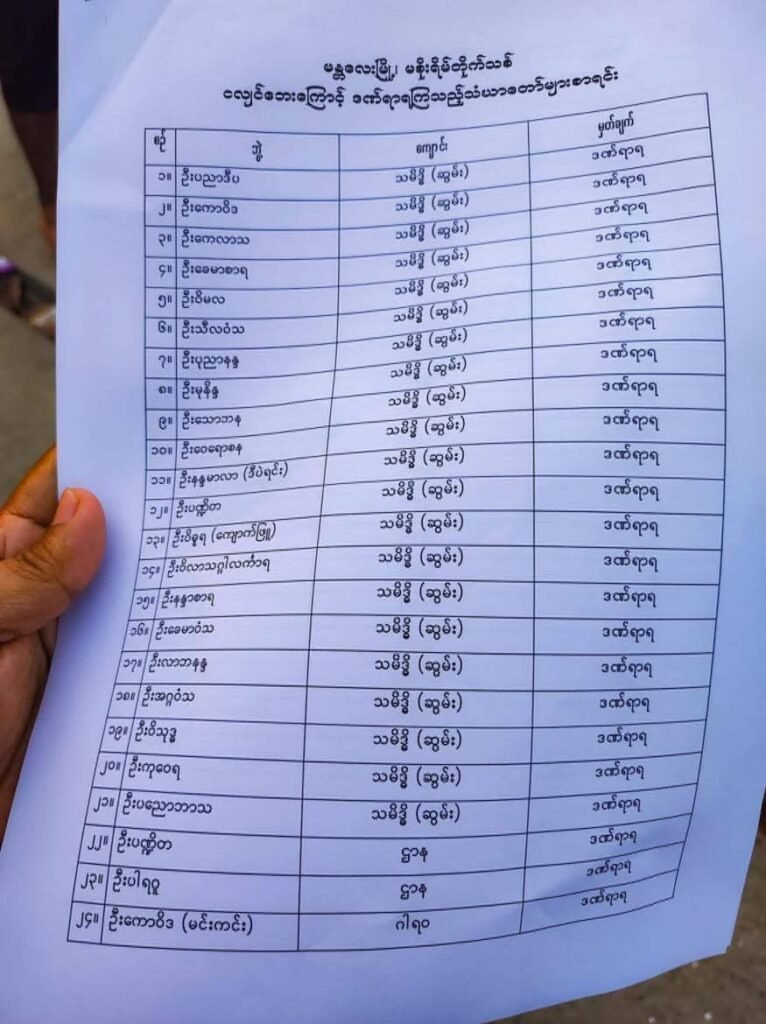 မန္တလေးမြို့၊ မစိုးရိမ်တိုက်သစ်
ငလျင်ဘေးကြောင့် ဒဏ်ရာရကြသည့်သံဃာတော်များစာရင်း
စဉ် ဘွဲ့ ကျောင်း မှတ်ချက်
၁။ ဦးပညာဒီပ သမိဒ္ဓိ (ဆွမ်း) ဒဏ်ရာရ
၂။ ဦးကောဝိဒ သမိဒ္ဓိ (ဆွမ်း) ဒဏ်ရာရ
၃။ ဦးကေလာသ သမိဒ္ဓိ (ဆွမ်း) ဒဏ်ရာရ
၄။ ဦးခေမာစာရ သမိဒ္ဓိ (ဆွမ်း) ဒဏ်ရာရ
၅။ ဦးဝိမလ သမိဒ္ဓိ (ဆွမ်း) ဒဏ်ရာရ
၆။ ဦးသီလဝံသ သမိဒ္ဓိ (ဆွမ်း) ဒဏ်ရာရ
၇။ ဦးပုညာနန္ဒ သမိဒ္ဓိ (ဆွမ်း) ဒဏ်ရာရ
၈။ ဦးမုနိန္ဒ သမိဒ္ဓိ (ဆွမ်း) ဒဏ်ရာရ
၉။ ဦးသောဘန သမိဒ္ဓိ (ဆွမ်း) ဒဏ်ရာရ
၁၀။ ဦးဝေရောစန သမိဒ္ဓိ (ဆွမ်း) ဒဏ်ရာရ
၁၁။ ဦးနန္ဒမာလာ (ဒီပဲရင်း) သမိဒ္ဓိ (ဆွမ်း) ဒဏ်ရာရ
၁၂။ ဦးပဏ္ဍိတ သမိဒ္ဓိ (ဆွမ်း) ဒဏ်ရာရ
၁၃။ ဦးဝိဓူရ (ကျောက်ဖြူ) သမိဒ္ဓိ (ဆွမ်း) ဒဏ်ရာရ
၁၄။ ဦးဝိလာသဂ္ဂါလင်္ကာရ သမိဒ္ဓိ (ဆွမ်း) ဒဏ်ရာရ
၁၅။ ဦးနန္ဒာစာရ သမိဒ္ဓိ (ဆွမ်း) ဒဏ်ရာရ
၁၆။ ဦးခေမာဝံသ သမိဒ္ဓိ (ဆွမ်း) ဒဏ်ရာရ
၁၇။ ဦးလာဘနန္ဒ သမိဒ္ဓိ (ဆွမ်း) ဒဏ်ရာရ
၁၈။ ဦးအဂ္ဂဝံသ သမိဒ္ဓိ (ဆွမ်း) ဒဏ်ရာရ
၁၉။ ဦးဝိသုဒ္ဓ သမိဒ္ဓိ (ဆွမ်း) ဒဏ်ရာရ
၂၀။ ဦးကုဝေရ သမိဒ္ဓိ (ဆွမ်း) ဒဏ်ရာရ
၂၁။ ဦးပညောဘာသ သမိဒ္ဓိ (ဆွမ်း) ဒဏ်ရာရ
၂၂။ ဦးပဏ္ဍိတ ဌာန ဒဏ်ရာရ
၂၃။ ဦးပါရဂူ ဌာန ဒဏ်ရာရ
၂၄။ ဦးကောဝိဒ (မင်းကင်း) ဂါရဝ ဒဏ်ရာရ